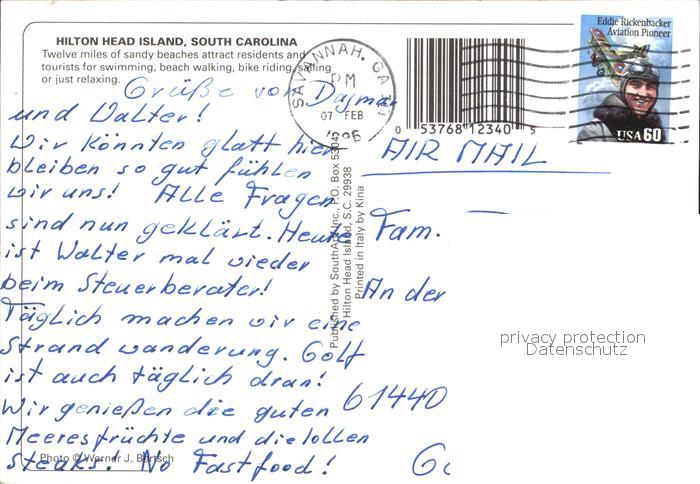 HILTON HEAD ISLAND, SOUTH CAROLINA
Twelve miles of sandy beaches attract residents and
tourists for swimming, beach walking, bike riding, sailing
or just relaxing.
Grüße von Dagmar
und Walter!
Wir könnten glatt hier
bleiben so gut fühlen
wir uns! Alle Fragen
sind nun geklärt. Heute
ist Walter mal wieder
beim Steuerberater!
Täglich machen wir eine
Strandwanderung. Golf
ist auch täglich dran!
Wir genießen die guten
Meeresfrüchte und die tollen
Steaks! No Fastfood!
Photo © Werner J. Bertsch
Published by SouthArt, Inc., P.O. Box
Hilton Head Island, S.C. 29938
Printed in Italy by Kina
SAVANNAH, GA
PM
07 FEB
1996
0 53768 12340 5
Eddie Rickenbacker
Aviation Pioneer
USA 60
AIR MAIL
Fam.
An der
privacy protection
Datenschutz
61440